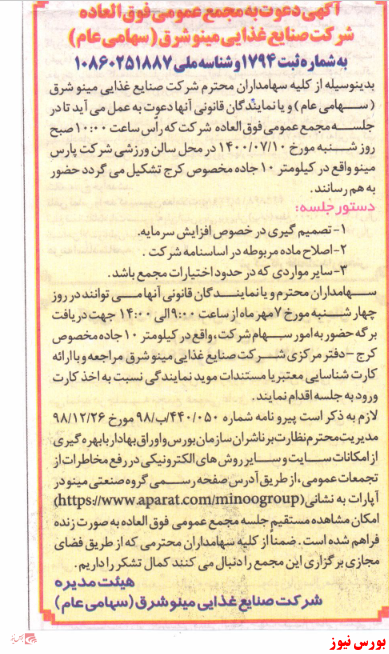 آگهی دعوت به مجمع عمومی فوق العاده
شرکت صنایع غذایی مینو شرق (سهامی عام)
به شماره ثبت ۱۷۹۴ و شناسه ملی ۱۰۸۶۰۲۵۱۸۸۷
بدینوسیله از کلیه سهامداران محترم شرکت صنایع غذایی مینو شرق
(سهامی عام) و یا نمایندگان قانونی آنها دعوت به عمل می آید تا در
جلسه مجمع عمومی فوق العاده شرکت که رأس ساعت ۱۰:۰۰ صبح
روز شنبه مورخ ۱۴۰۰/۰۷/۱۰ در محل سالن ورزشی شرکت پارس
مینو واقع در کیلومتر ۱۰ جاده مخصوص کرج تشکیل می گردد حضور
به هم رسانند.
دستور جلسه:
۱- تصمیم گیری در خصوص افزایش سرمایه.
۲- اصلاح ماده مربوطه در اساسنامه شرکت.
۳- سایر مواردی که در حدود اختیارات مجمع باشد.
سهامداران محترم و یا نمایندگان قانونی آنها می توانند در روز
چهارشنبه مورخ ۷ مهر ماه از ساعت ۹:۰۰ الی ۱۴:۰۰ جهت دریافت
برگه حضور به امور سهام شرکت، واقع در کیلومتر ۱۰ جاده مخصوص
کرج - دفتر مرکزی شرکت صنایع غذایی مینو شرق مراجعه و با ارائه
کارت شناسایی معتبر یا مستندات موید نمایندگی نسبت به اخذ کارت
ورود به جلسه اقدام نمایند.
لازم به ذکر است پیرو نامه شماره ۴۴۰/۰۵۰/ب/۹۸ مورخ ۹۸/۱۲/۲۶
مدیریت محترم نظارت بر ناشران سازمان بورس و اوراق بهادار با بهره گیری
از امکانات سایت و سایر روش های الکترونیکی در رفع مخاطرات از
تجمعات عمومی، از طریق آدرس صفحه رسمی گروه صنعتی مینو در
آپارات به نشانی (https://www.aparat.com/minoogroup)
امکان مشاهده مستقیم جلسه مجمع عمومی فوق العاده به صورت زنده
فراهم شده است. ضمناً از کلیه سهامداران محترمی که از طریق فضای
مجازی برگزاری این مجمع را دنبال می کنند کمال تشکر را داریم.
هیئت مدیره
شرکت صنایع غذایی مینو شرق (سهامی عام)
بورس نیوز